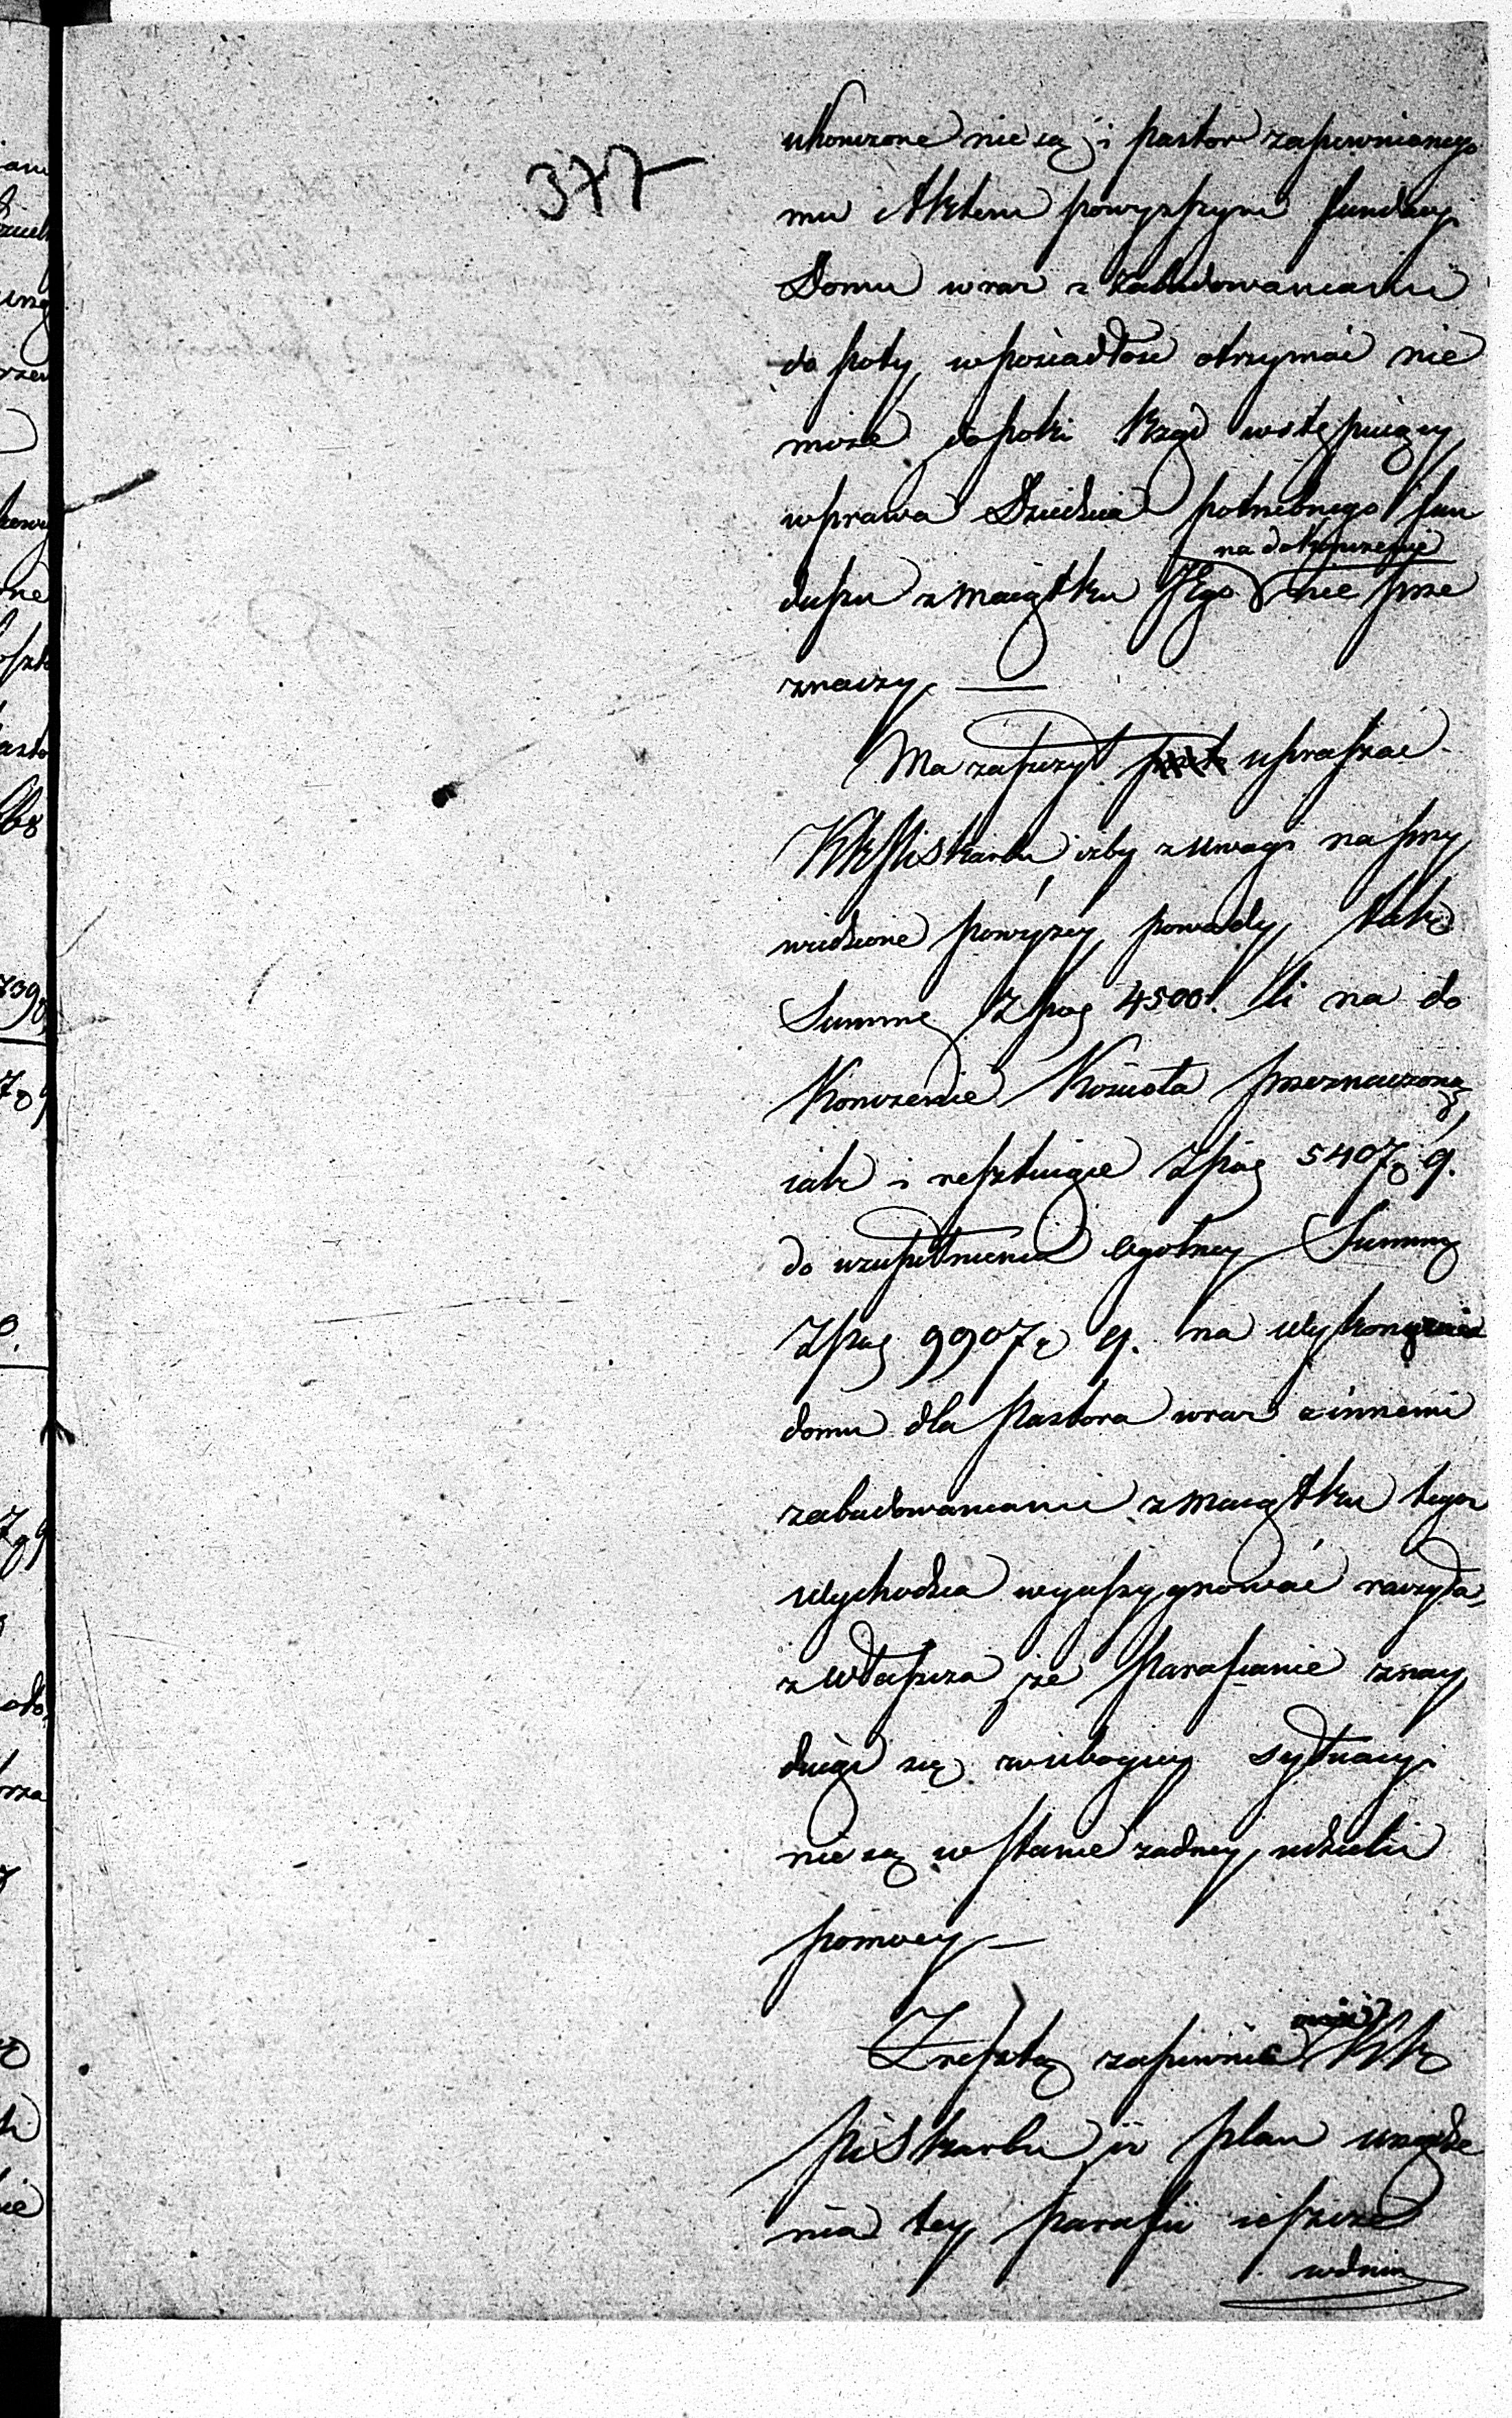 377
ukonczone nie są i pastor zapewnionego
mu Aktem powyzszym fundacyi
Domu wraz z zabudowaniami
do poty w posiadłosć otrzymać nie
moze dopoki Rząd wstępuiący
w prawa Dziedzica potrzebnego fun
na dokonczenie
duszu z maiątku Jego nie prze
znaczy —
Ma zaszczyt upraszać
KRPiSkarbu, izby z uwagi na przy
wiedzione powyzey powody tak
Summę Zło 4500. li na do
Konczenie Kościoła przeznaczoną,
iak i resztuiące Złp 5407 g 9.
do uzupełnienia ogolney Summy
Złp 9907 g 9. na Wykonanie
domu dla Pastora wraz z innemi
zabudowaniami z maiątku tegoz
Wychodzca wyassygnować raczyła,
z właszcza ze Parafianie znay
duiąc się w ubogiey sytuacyi
nie są w stanie zadney udzielić
pomocy —
Zresztą zapewnić KR
PiSkarbu iż plan urządze
nia tey parafii ieszcze
w dniu